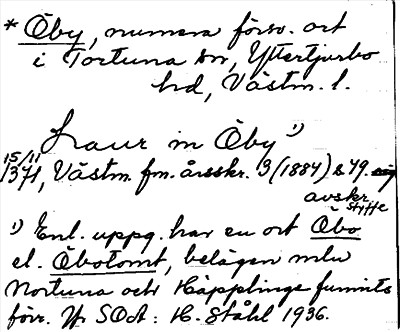 * Öby, numera försv. ort
i Tortuna sn, Yttertjurbo
hd, Västm. l.
Laur in Öby 1)
15/11
1371, Västm. fm. årsskr. 3 (1884) s. 49.
avskr.
Styffe
1) Enl. uppg. har en ort Öbo
el. Öbotomt, belägen mlu
Nortuna och Häpplinge funnits
förr. Yt SOA: H. Ståhl 1936.